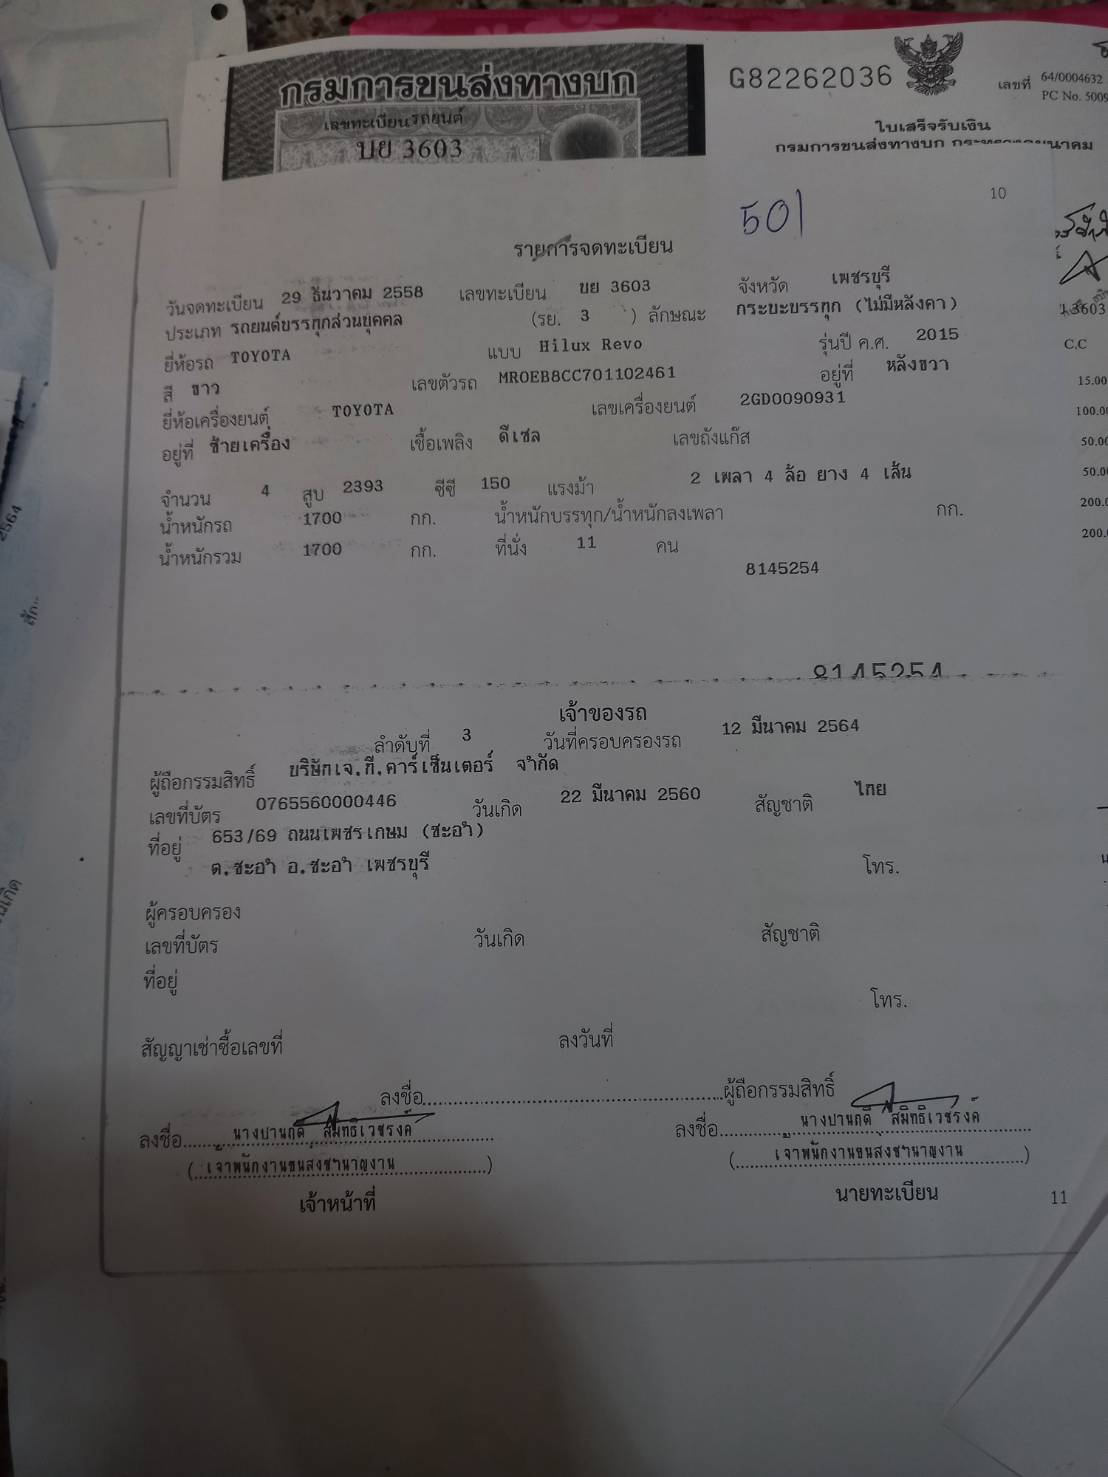 กรมการขนส่งทางบก
เลขทะเบียนรถยนต์
บย 3603
G82262036
เลขที่ 64/0004632
PC No. 5009
ใบเสร็จรับเงิน
กรมการขนส่งทางบก
10
501
รายการจดทะเบียน
วันจดทะเบียน 29 ธันวาคม 2558 เลขทะเบียน บย 3603 จังหวัด เพชรบุรี
ประเภท รถยนต์บรรทุกส่วนบุคคล (รย. 3 ) ลักษณะ กระบะบรรทุก (ไม่มีหลังคา)
ยี่ห้อรถ TOYOTA แบบ Hilux Revo รุ่นปี ค.ศ. 2015
สี ขาว เลขตัวรถ MR0EB8CC701102461 อยู่ที่ หลังขวา
ยี่ห้อเครื่องยนต์ TOYOTA เลขเครื่องยนต์ 2GD0090931
อยู่ที่ ซ้ายเครื่อง เชื้อเพลิง ดีเซล เลขถังแก๊ส
จำนวน 4 สูบ 2393 ซีซี 150 แรงม้า 2 เพลา 4 ล้อ ยาง 4 เส้น
น้ำหนักรถ 1700 กก. น้ำหนักบรรทุก/น้ำหนักลงเพลา กก.
น้ำหนักรวม 1700 กก. ที่นั่ง 11 คน
8145254
8145254
3603
C.C
15.00
100.00
50.00
50.00
200.
200.
2564
เจ้าของรถ
ลำดับที่ 3 วันที่ครอบครองรถ 12 มีนาคม 2564
ผู้ถือกรรมสิทธิ์ บริษัทเจ.ที.คาร์เซ็นเตอร์ จำกัด
เลขที่บัตร 0765560000446 วันเกิด 22 มีนาคม 2560 สัญชาติ ไทย
ที่อยู่ 653/69 ถนนเพชรเกษม (ชะอำ)
ต.ชะอำ อ.ชะอำ เพชรบุรี โทร.
ผู้ครอบครอง
เลขที่บัตร วันเกิด สัญชาติ
ที่อยู่
โทร.
สัญญาเช่าซื้อเลขที่ ลงวันที่
ลงชื่อ ผู้ถือกรรมสิทธิ์
ลงชื่อ นางปานฤดี สมิทธิเวชรงค์ ลงชื่อ นางปานฤดี สมิทธิเวชรงค์
(เจ้าพนักงานขนส่งชำนาญงาน) (เจ้าพนักงานขนส่งชำนาญงาน)
เจ้าหน้าที่ นายทะเบียน
11